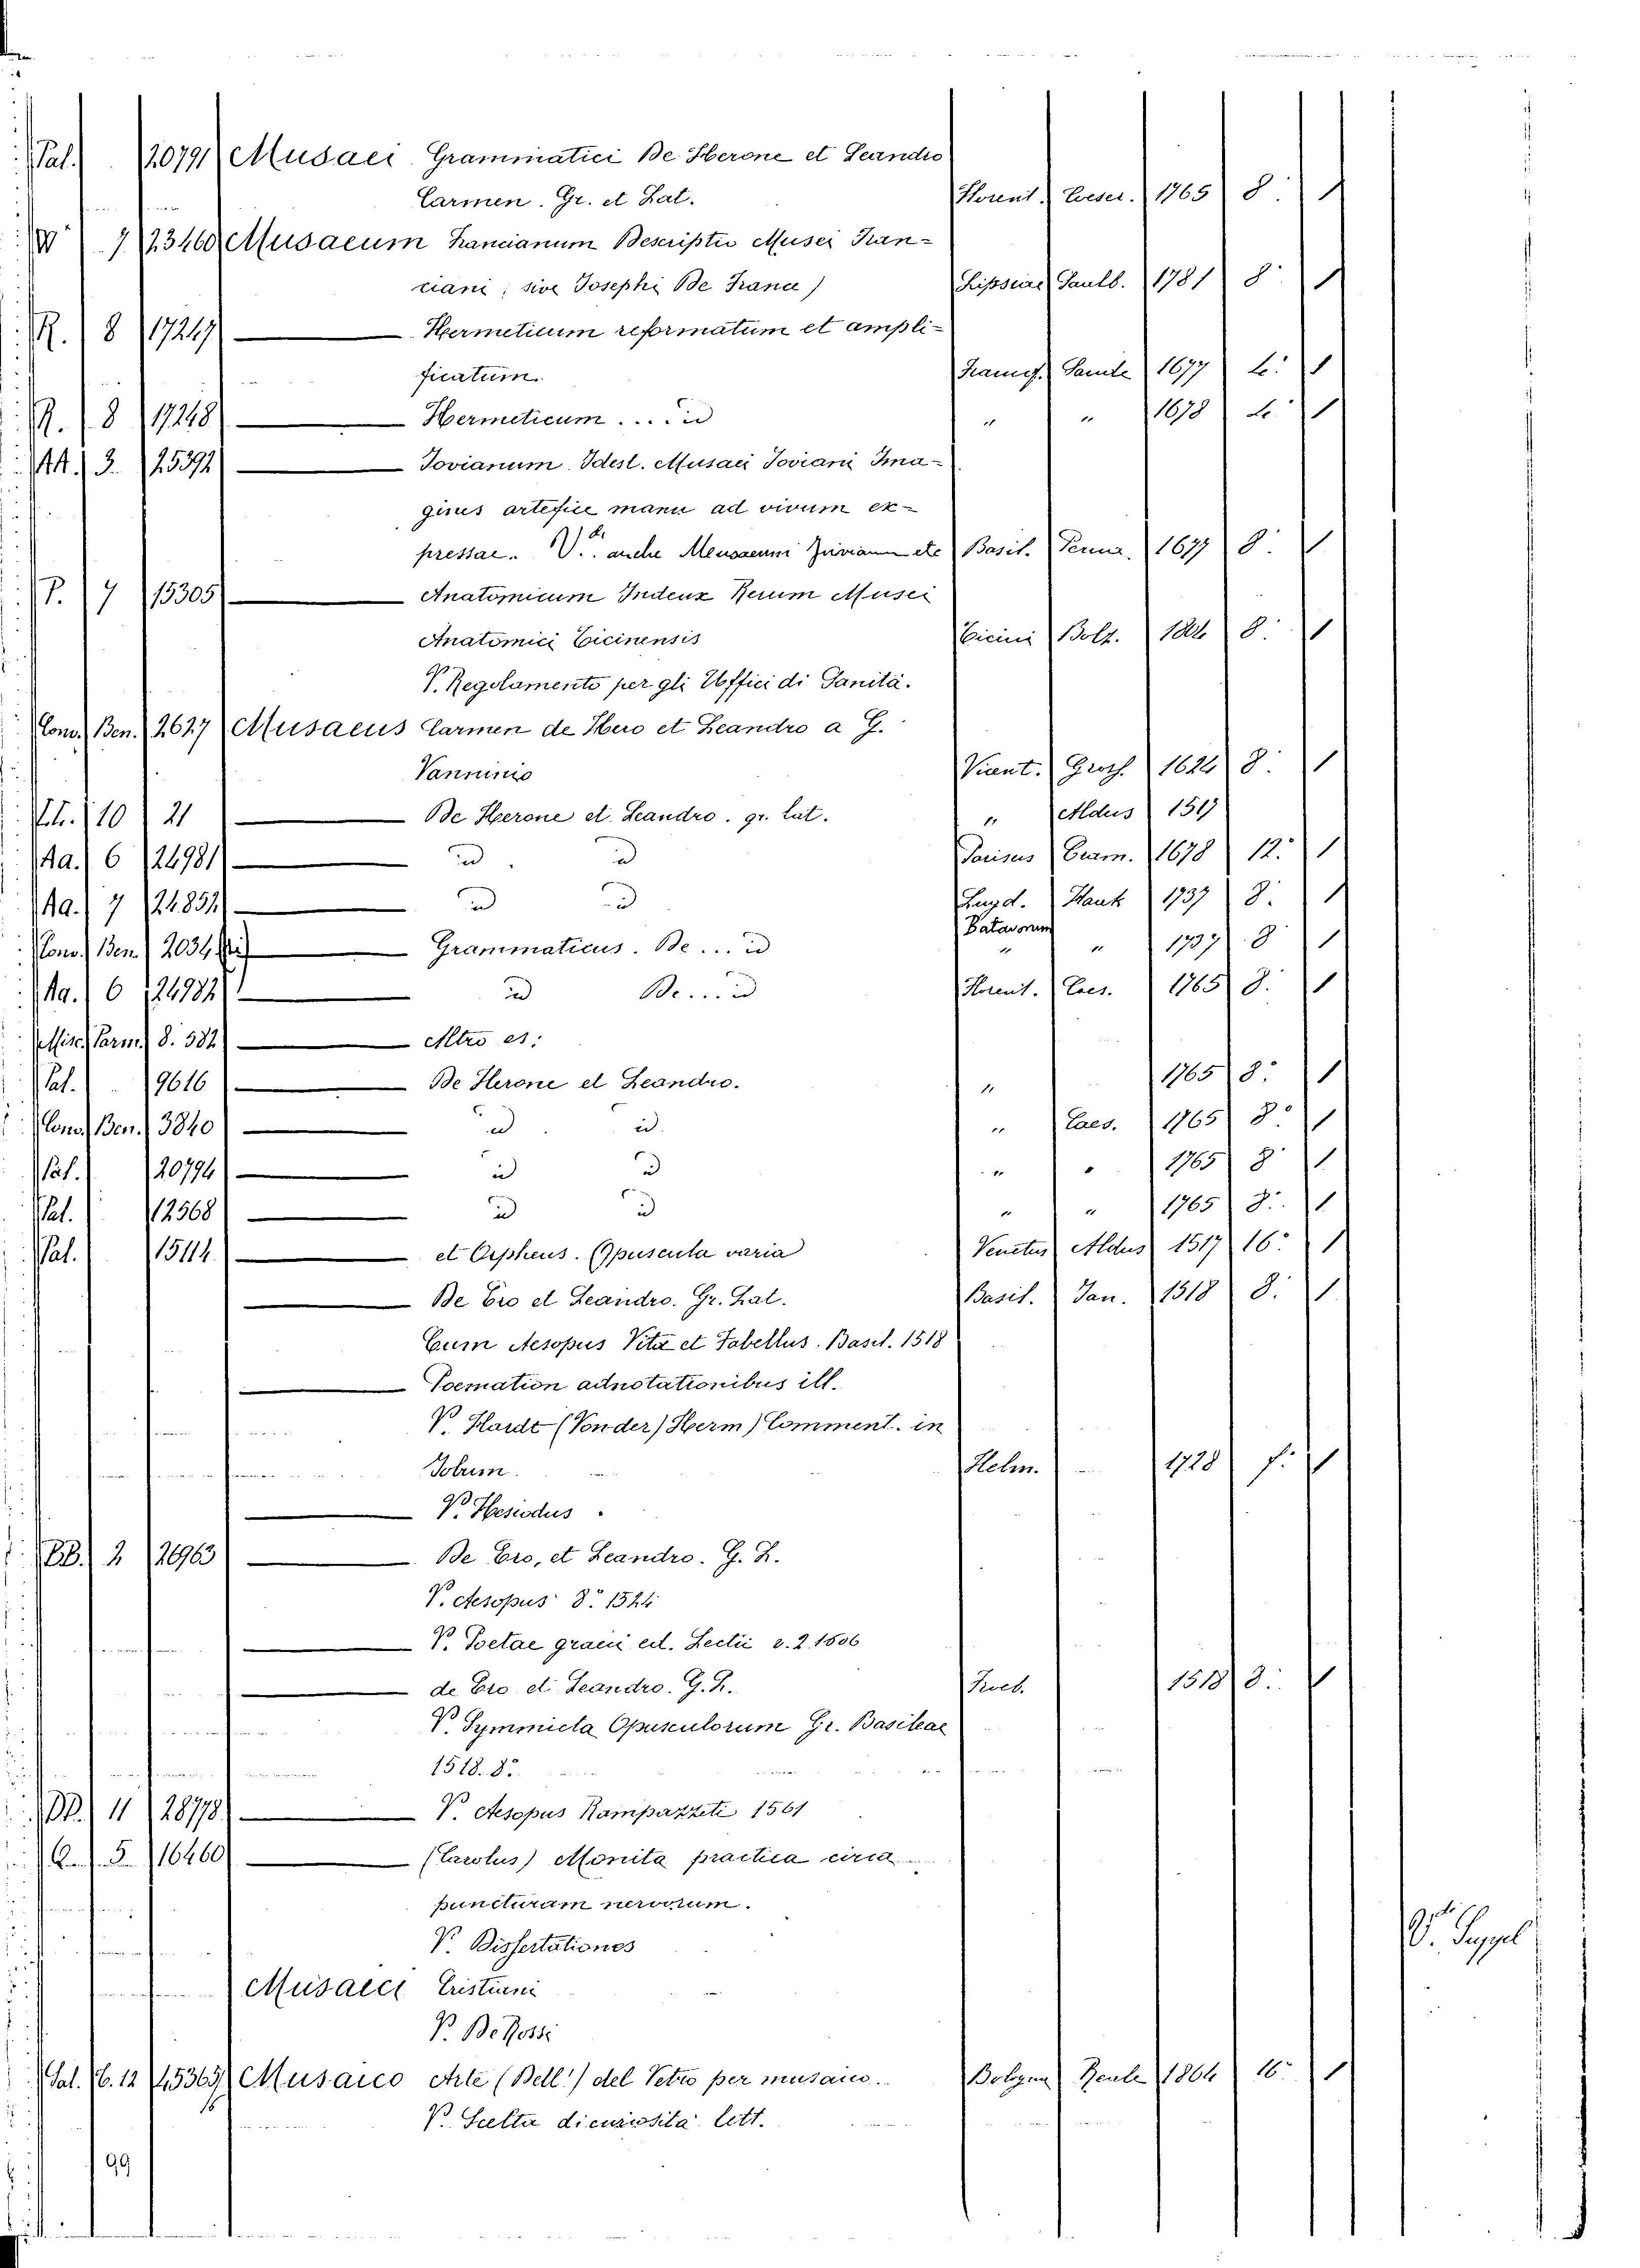 Pal. 20791 Musaei Grammatici De Herone et Leandro
Carmen. Gr. et Lat. Florent. Caeser. 1765 8. 1
W 7 23460 Musaeum Francianum Descriptio Musei Fran-
ciani, sive Josephi De France) Lipsiae Saulb. 1781 8. 1
R. 8 17247 Hermeticum reformatum et ampli-
ficatum. Francf. Sande 1677 4. 1
R. 8 17248 Hermeticum .... id " " 1678 4. 1
AA. 3. 25392 Jovianum. Idest. Musaei Joviani Ima-
gines artefice manu ad vivum ex-
pressae. V. anche Basil. Pernae. 1677 8. 1
P. 7 15305 Anatomicum Index Rerum Musei
Anatomici Ticinensis Ticini Bolz. 8. 1
V. Regolamento per gli Uffici di Sanità.
Conv. Ben. 2627 Musaeus Carmen de Hero et Leandro a G.
Vanninio Groth. 1624 8. 1
10 21 De Herone et Leandro. gr. lat. " Aldus 1517
Aa. 6 24981 id id Parisus Cram. 1678 12. 1
Aa. 7 24852 id id Lugd. Hauk 1737 8. 1
Batavorum
Conv. Ben. 2034 Grammaticus. De ... id " " 1737 8 1
Aa. 6 24982 id De.... id Florent. Caes. 1765 8. 1
Misc. Parm. 8. 582 Altro es:
Pal. 9616 De Herone et Leandro. " 1765 8. 1
Conv. Ben. 3840 id id " Caes. 1765 8° 1
Pal. 20794 id id " " 1765 8 1
Pal. 12568 id id " " 1765 8. 1
Pal. 15114 et Orpheus. Opuscula varia Venetus Aldus 1517 16. 1
De Ero et Leandro. Gr. Lat. Basil. Jan. 1518 8. 1
Cum Aesopus Vita et Fabellus. Basil. 1518
Poemation adnotationibus ill.
V. Hardt (Vonder) Herm) Comment. in
Jobum. Helm. 1728 f. 1
V. Hesiodus.
BB. 2 26963 De Ero, et Leandro. G. L.
V. Aesopus 8° 1524
V. Poetae graeci ed. Lectii v. 2. 1606
de Ero et Leandro. G. L. Froeb. 1518 8. 1
V. Symmicta Opusculorum Gr. Basileae
1518. 8°.
11 28778 V. Aesopus Rampazzeti 1561
Q. 5 16460 (Carolus) Monita practica circa
puncturam nervorum.
V. Dissertationes
V. Suppl
Musaici Cristiani
V. De Rossi
Sal. C. 12 45365 Musaico Arte (Dell') del Vetro per musaico. Bologna Reale 1864 16. 1
V. Scelta di curiosità lett.
99